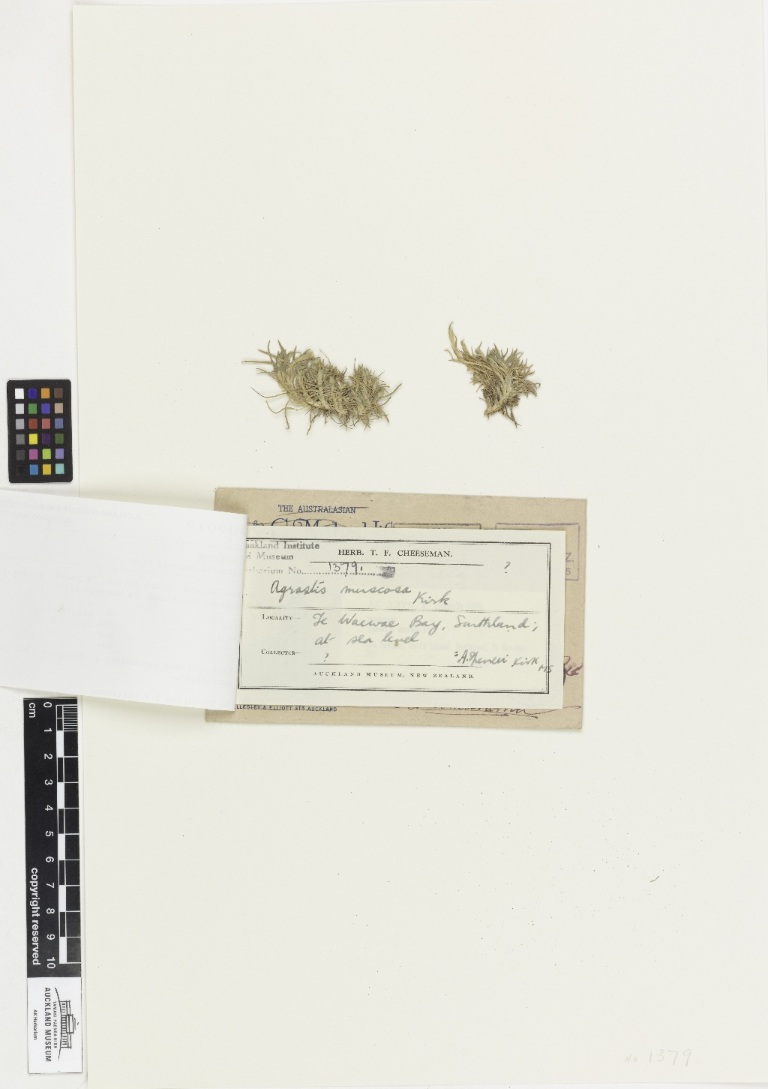 THE AUSTRALASIAN
Auckland Institute
& Museum
HERB. T. F. CHEESEMAN.
Herbarium No. 1379. ?
Agrostis muscosa Kirk
LOCALITY— Te Waewae Bay, Southland;
at sea level
COLLECTOR— ? Kirk MS
AUCKLAND MUSEUM, NEW ZEALAND.
ELLIOTT STS AUCKLAND
cm
0 1 2 3 4 5 6 7 8 9 10
copyright reserved
AUCKLAND MUSEUM
AK Herbarium
1379